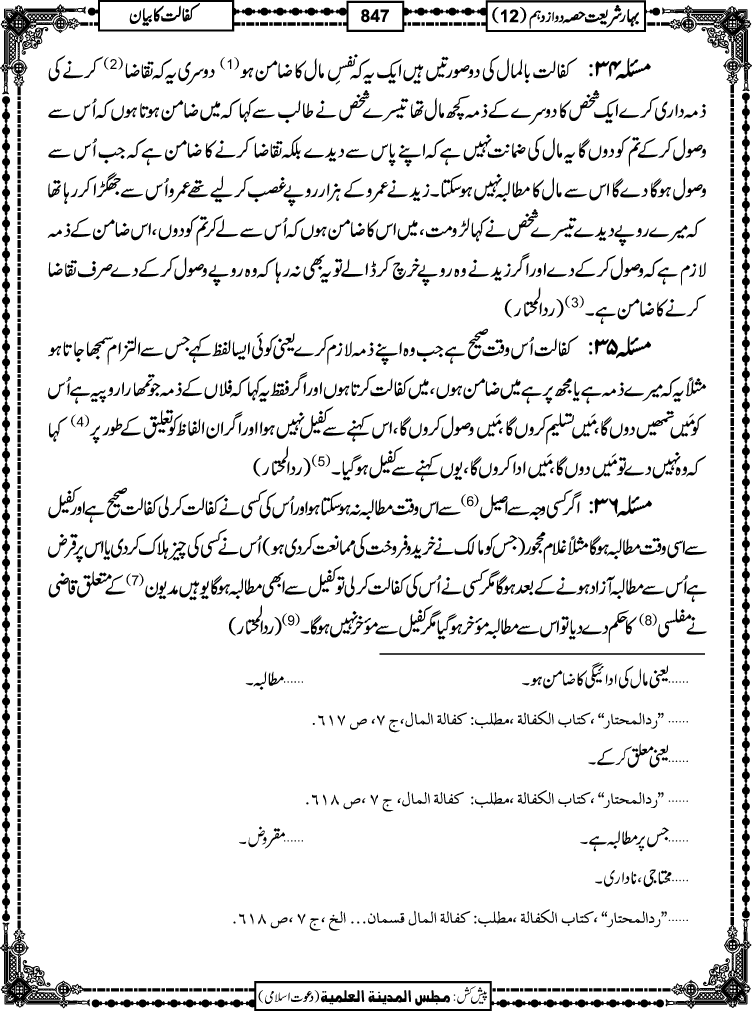 بہار شریعت حصہ دوازدہم (12)
847
کفالت کا بیان
مسئلہ ۳۴: کفالت بالمال کی دو صورتیں ہیں ایک یہ کہ نفسِ مال کا ضامن ہو (1) دوسری یہ کہ تقاضا (2) کرنے کی
ذمہ داری کرے ایک شخص کا دوسرے کے ذمہ کچھ مال تھا تیسرے شخص نے طالب سے کہا کہ میں ضامن ہوتا ہوں کہ اُس سے
وصول کر کے تم کو دوں گا یہ مال کی ضمانت نہیں ہے کہ اپنے پاس سے دیدے بلکہ تقاضا کرنے کا ضامن ہے کہ جب اُس سے
وصول ہوگا دے گا اس سے مال کا مطالبہ نہیں ہوسکتا۔ زید نے عمرو کے ہزار روپے غصب کر لیے تھے عمرو اُس سے جھگڑا کر رہا تھا
کہ میرے روپے دیدے تیسرے شخص نے کہا لڑو مت، میں اس کا ضامن ہوں کہ اُس سے لے کر تم کو دوں، اس ضامن کے ذمہ
لازم ہے کہ وصول کر کے دے اور اگر زید نے وہ روپے خرچ کر ڈالے تو یہ بھی نہ رہا کہ وہ روپے وصول کر کے دے صرف تقاضا
کرنے کا ضامن ہے۔ (3) (ردالمحتار)
مسئلہ ۳۵: کفالت اُس وقت صحیح ہے جب وہ اپنے ذمہ لازم کرے یعنی کوئی ایسا لفظ کہے جس سے التزام سمجھا جاتا ہو
مثلاً یہ کہ میرے ذمہ ہے یا مجھ پر ہے میں ضامن ہوں، میں کفالت کرتا ہوں اور اگر فقط یہ کہا کہ فلاں کے ذمہ جو تمھارا روپیہ ہے اُس
کو مَیں تمھیں دوں گا، مَیں تسلیم کروں گا، مَیں وصول کروں گا، اس کہنے سے کفیل نہیں ہوا اور اگر ان الفاظ کو تعلیق کے طور پر (4) کہا
کہ وہ نہیں دے تو مَیں دوں گا، مَیں ادا کروں گا، یوں کہنے سے کفیل ہوگیا۔ (5) (ردالمحتار)
مسئلہ ۳۶: اگر کسی وجہ سے اصیل (6) سے اس وقت مطالبہ نہ ہوسکتا ہو اور اُس کی کسی نے کفالت کر لی کفالت صحیح ہے اور کفیل
سے اسی وقت مطالبہ ہوگا مثلاً غلام محجور (جس کو مالک نے خرید و فروخت کی ممانعت کر دی ہو) اُس نے کسی کی چیز ہلاک کر دی یا اس پر قرض
ہے اُس سے مطالبہ آزاد ہونے کے بعد ہوگا مگر کسی نے اُس کی کفالت کر لی تو کفیل سے ابھی مطالبہ ہوگا یوہیں مدیون (7) کے متعلق قاضی
نے مفلسی (8) کا حکم دے دیا تو اس سے مطالبہ مؤخر ہوگیا مگر کفیل سے مؤخر نہیں ہوگا۔ (9) (ردالمحتار)
......یعنی مال کی ادائیگی کا ضامن ہو۔ ......مطالبہ۔
...... ”ردالمحتار“، کتاب الکفالة، مطلب: کفالة المال، ج ۷، ص ٦١٧.
......یعنی معلق کر کے۔
...... ”ردالمحتار“، کتاب الکفالة، مطلب: کفالة المال، ج ۷، ص ٦١٨.
......جس پر مطالبہ ہے۔ ......مقروض۔
......محتاجی، ناداری۔
......”ردالمحتار“، کتاب الکفالة، مطلب: کفالة المال قسمان... الخ، ج ۷، ص ٦١٨.
پیش کش: مجلس المدینة العلمیة (دعوت اسلامی)